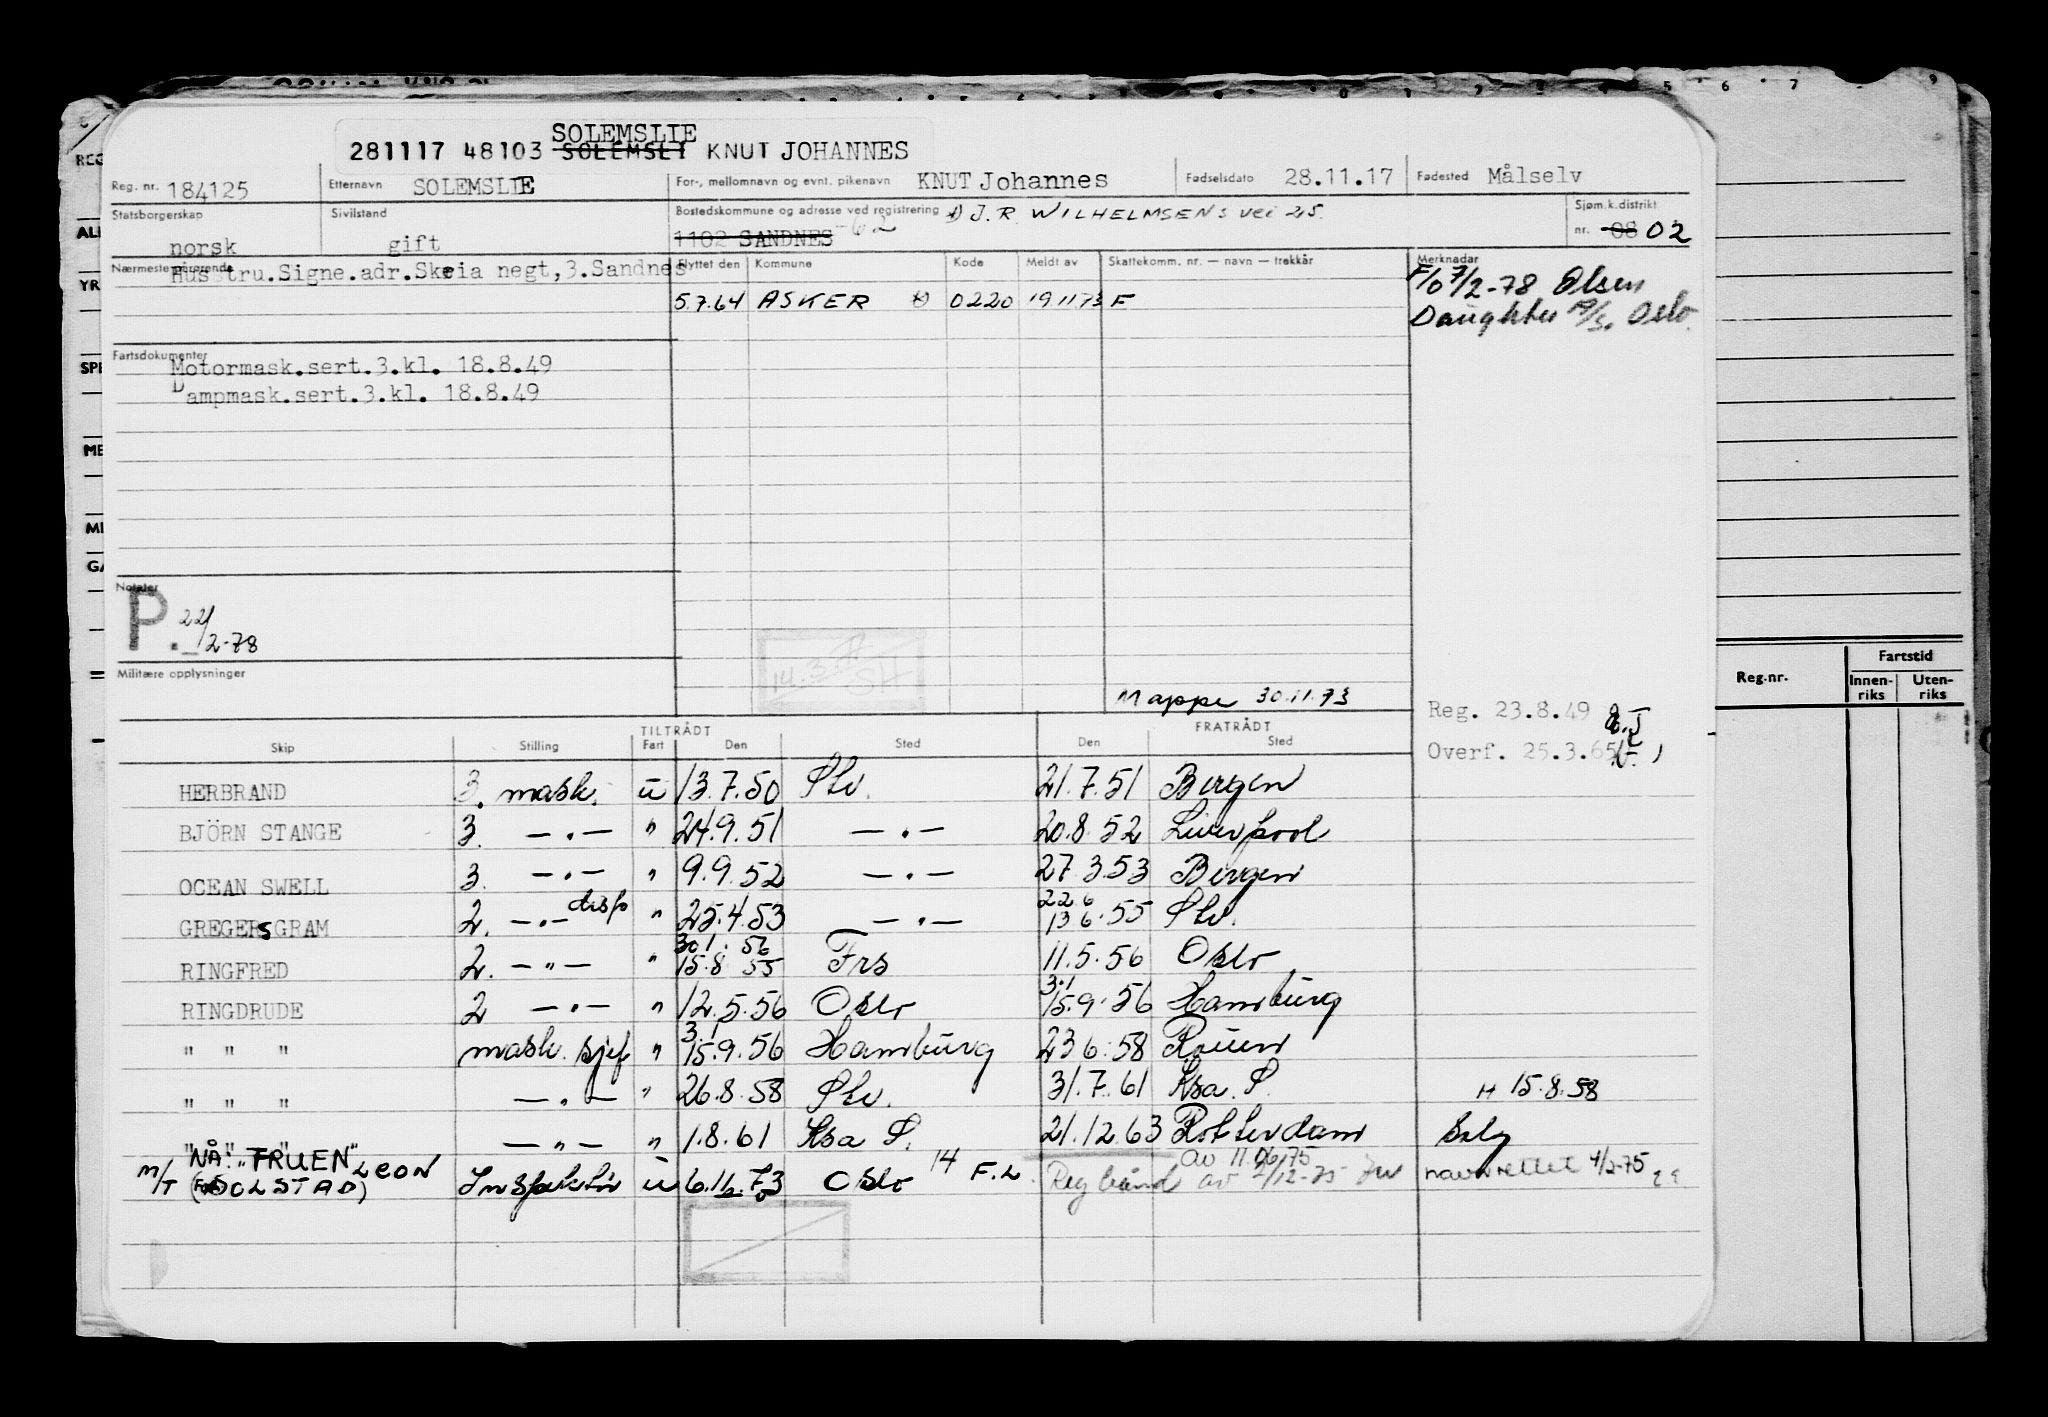 SOLEMSLIE
281117 48103 SOLEMSLI KNUT JOHANNES
Reg. nr. 184125 Etternavn SOLEMSLIE For-, mellomnavn og evnt. pikenavn KNUT Johannes Fødselsdato 28.11.17 Fødested Målselv
Statsborgerskap norsk Sivilstand gift Bostedskommune og adresse ved registrering 1102 SANDNES x) J.R. WILHELMSENS vei 25. Sjøm.k.distrikt nr. 08 02
62
Nærmeste pårørende Hustru.Signe.adr.Skeia negt,3.Sandnes
Flyttet den Kommune Kode Meldt av Skattekomm. nr. — navn — trekkår Merknadar
5.7.64 ASKER x) 0220 19.11.73 F
F/o 7/2-78 Olsen
Daughter A/S. Oslo.
Fartsdokumenter
Motormask.sert.3.kl. 18.8.49
Dampmask.sert.3.kl. 18.8.49
Notater
P. 22/2-78
Militære opplysninger
14.3.
SH
Mappe 30.11.73
Reg. 23.8.49
Overf. 25.3.65
TILTRÅDT FRATRÅDT
Skip Stilling Fart Den Sted Den Sted
HERBRAND 3. mask. u 13.7.50 Stv. 21.7.51 Bergen
BJÖRN STANGE 3. —.— " 24.9.51 —.— 20.8.52 Liverpool
OCEAN SWELL 3. —.— " 9.9.52 —.— 27.3.53 Bergen
disp 22 6
GREGERS GRAM 2. —.— " 25.4.53 —.— 13 6.55 Stv.
30 1. 56
RINGFRED 2. —"— " 15.8 55 Frs 11.5.56 Oslo
3.1
RINGDRUDE 2 —.— " 12.5.56 Oslo 15.9.56 Hamburg
3.1
" " " mask. sjef " 15.9.56 Hamburg 23 6.58 Rouen
" " " —.— " 26.8.58 Stv. 31.7.61 Ksa. S. H 15.8.58
" " " —"— " 1.8.61 Ksa S. 21.12.63 Rotterdam Salg
NÅ: "FRUEN" av 11.06.75
M/T (F SOLSTAD) LEON Inspektør u 6.11.73 Oslo 14 F.L Reg bånd av 4/12-75 navn rettet 4/2-75
Reg.nr. Fartstid
Innen-riks Uten-riks